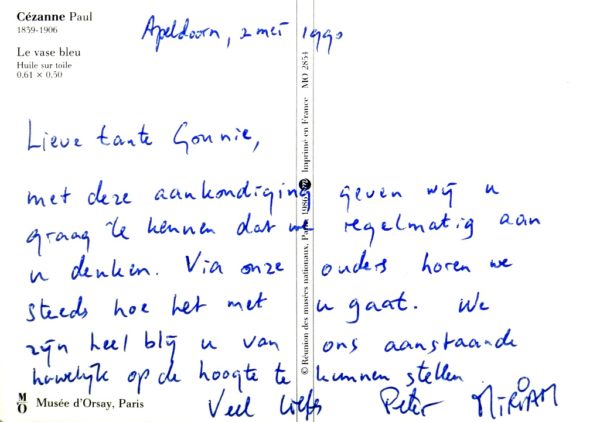 Cézanne Paul
1839-1906
Le vase bleu
Huile sur toile
0.61 × 0.50
Apeldoorn, 2 mei 1990
Lieve tante Gonnie,
met deze aankondiging geven wij u
graag te kennen dat we regelmatig aan
u denken. Via onze ouders horen we
steeds hoe het met u gaat. We
zijn heel blij u van ons aanstaande
huwelijk op de hoogte te kunnen stellen.
Veel liefs Peter MiRiAM
© Réunion des musées nationaux, Paris, 1986 Imprimé en France MO 2854
M
O
Musée d'Orsay, Paris